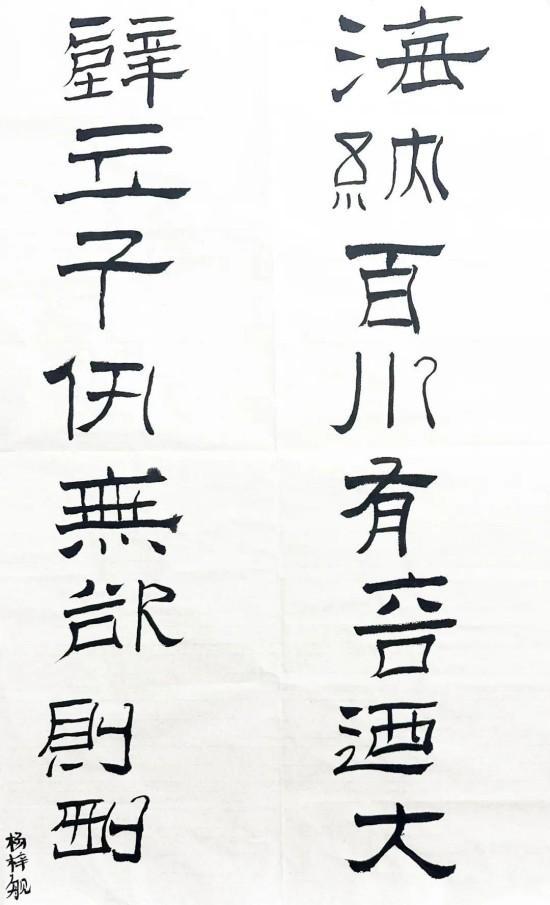 海納百川有容迺大
壁立千仞無欲則剛
杨梓舰